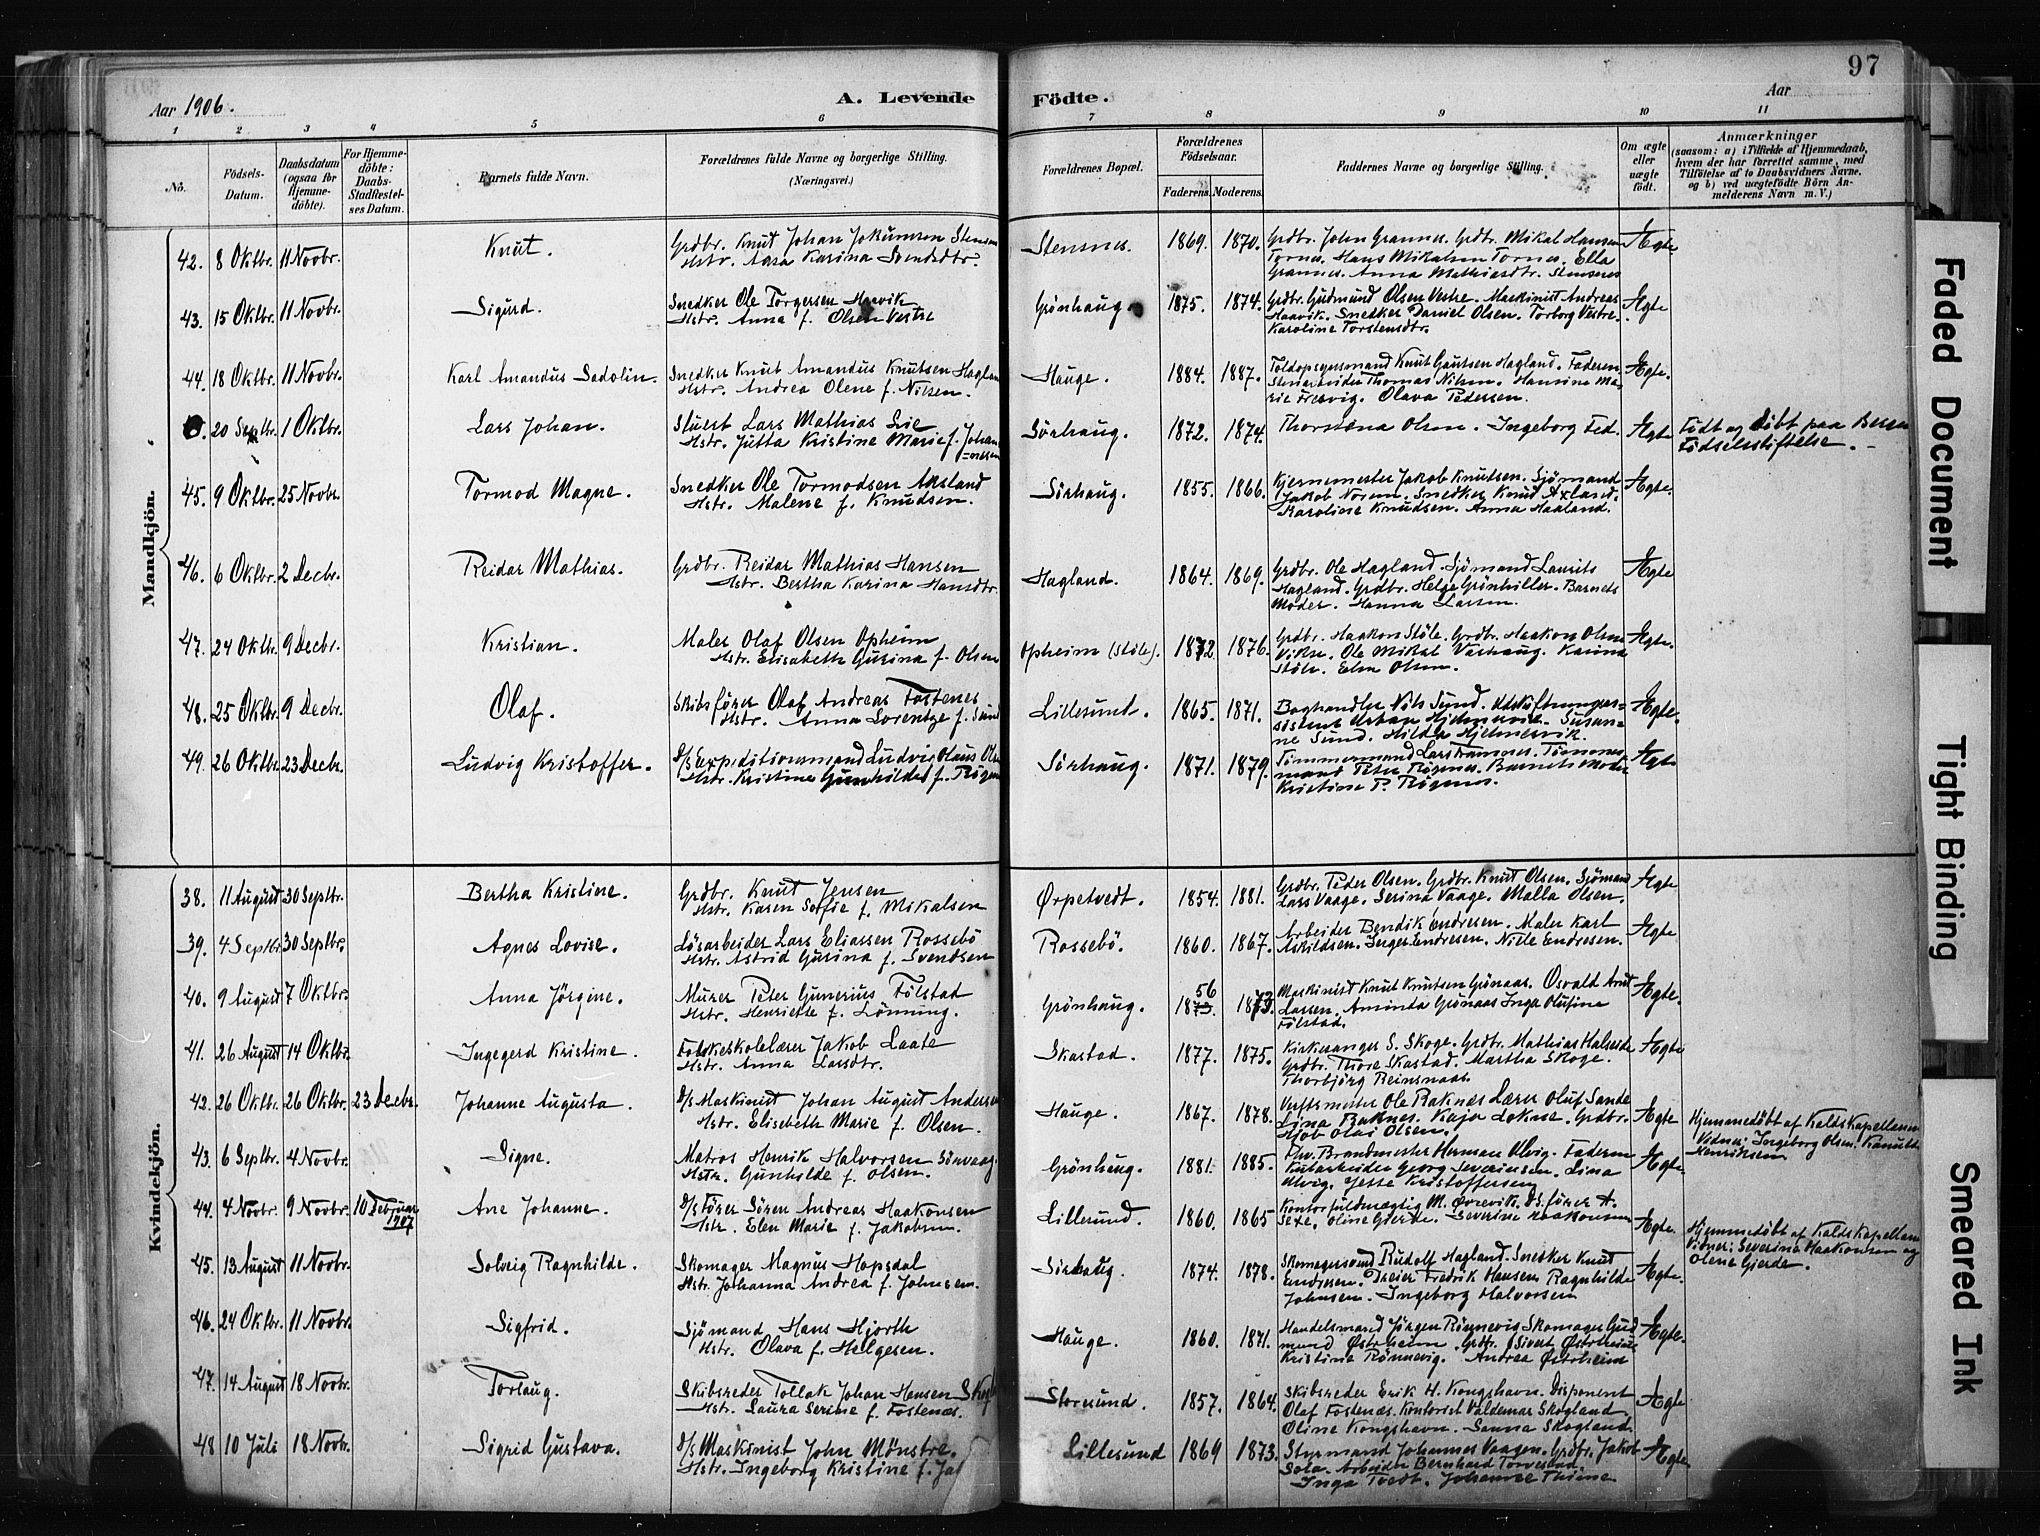 97
Aar 1906.
A. Levende Födte.
Aar
1 2 3 4 5 6 7 8 9 10 11
No.
Födsels-Datum.
Daabsdatum (ogsaa for Hjemme-döbte).
For Hjemme-döbte: Daabs-Stadfæstel-ses Datum.
Barnets fulde Navn.
Forældrenes fulde Navne og borgerlige Stilling. (Næringsvei.)
Forældrenes Bopæl.
Forældrenes Födselsaar.
Faderens. Moderens.
Faddernes Navne og borgerlige Stilling.
Om ægte eller uægte födt.
Anmærkninger
(saasom: a) i Tilfælde af Hjemmedaab, hvem der har forrettet samme, med Tilföielse af to Daabsvidners Navne. og b) ved uægtefödte Börn An-melderens Navn m.V.)
Mandkjön.
42. 8 Oktbr. 11 Novbr. Knut. Grdbr. Knut Johan Jokumsen
Hstr. Aasa Karina Svendsdtr. Stensnes. 1869. 1870. Grdbr. John Grannes. Grdbr. Mikal Hansen
Tornes. Hans Mikalsen Tornes. Ella
Grannes. Anna Mathiasdtr. Stensnes Ægte
43. 15 Oktbr. 11 Novbr. Sigurd. Snedker Ole Torgersen Haavik
Hstr. Anna f. Olsen Vestre Grönhaug. 1875. 1874. Grdbr. Gudmund Olsen Vestre. Maskinist Andreas
Haavik. Snedker Daniel Olsen. Torborg Vestre.
Karoline Torstensdtr. Ægte
44. 18 Oktbr. 11 Novbr. Karl Amandus Sadolin. Snedker Knut Amandus Knutsen
Hstr. Andrea Olene f. Nilsen. Hauge. 1884. 1887. Toldopsynsmand Knut Gautsen Hagland. Faderen
Thomas Nilsen. Hansine Ma-
rie Olava Pedersen. Ægte.
20 Septbr. 1 Oktbr. Lars Johan. Stuert Lars Mathias
Hstr. Jutta Kristine Marie f. Johan
=nessen Sörhaug. 1872. 1874. Olsen. Ingeborg Ægte Födt og döbt paa
Födselsstiftelse.
45. 9 Oktbr. 25 Novbr. Tormod Magne. Snedker Ole Tormodsen
Hstr. Malene f. Knudsen. Sörhaug. 1855. 1866. Kjernemester Jakob Knutsen. Sjömand
Jakob Snedker Knud
Karoline Knudsen. Anna Haaland. Ægte.
46. 6 Oktbr. 2 Decbr. Reidar Mathias. Grdbr. Reidar Mathias Hansen
Hstr. Bertha Karina Hansdtr. Hagland. 1864. 1869. Grdbr. Ole Hagland. Sjömand Laurits
Hagland. Grdbr. Helge Barnets
Moder. Hanna Larsen. Ægte
47. 24 Oktbr. 9 Decbr. Kristian. Maler Olaf Olsen Opheim
Hstr. Elisabeth Gurina f. Olsen Opheim (Stöle). 1872 1876. Grdbr. Haakon Stöle. Grdbr. Haakon Olsen
Ole Mikal Karina
Stöle. Elen Olsen. Ægte.
48. 25 Oktbr. 9 Decbr. Olaf. Skibsförer Olaf Andreas Fostenes
Hstr. Anna Lorentze f. Sund Lillesund. 1865. 1871. Boghandler Nils Sund. Udskiftningsas-
sistent Hjelmervik. Susan=
ne Sund. Hilda Hjelmervik. Ægte.
49. 26 Oktbr. 23 Decbr. Ludvig Kristoffer. D/s Expeditionsmand Ludvig Olaus
Hstr. Kristine Gunhilded f. Sörhaug. 1871. 1879. Tömmermand Lars Tömmer=
mand Peter Barnets Moder
Kristine P. Ægte
Kvindekjön.
38. 11 August 30 Septbr. Bertha Kristine. Grdbr. Knut Jensen
Hstr. Karen Sofie f. Mikalsen Ørpetvedt. 1854. 1881. Grdbr. Peder Olsen. Grdbr. Knut Olsen. Sjömand
Lars Vaage. Serina Vaage. Malla Olsen. Ægte
39. 4 Septbr. 30 Septbr. Agnes Lovise. Lösarbeider Lars Eliassen Rossebö
Hstr. Astrid Gurina f. Svendsen Rossebö. 1860. 1867. Arbeider Bendik Endresen. Maler Karl
Askildsen. Inger Endresen. Nille Endresen. Ægte
40. 9 August 7 Oktbr. Anna Jörgine. Murer Peter Gunerius Fölstad
Hstr. Henriette f. Lönning. Grönhaug. 1873. 56 1873. Maskinist Knut Knutsen Grönaas. Osvald
Larsen. Aminda Grönaas Inga Olufine
Fölstad. Ægte.
41. 26 August 14 Oktbr. Ingegerd Kristine. Folkeskolelærer Jakob Laate
Hstr. Anna Larsdtr. Skastad. 1877. 1875. Kirkesanger S. Skoge. Grdbr. Mathias
Grdbr. Thore Skastad. Martha Skoge.
Thorbjörg Reinsnaas. Ægte
42. 26 Oktbr. 26 Oktbr. 23 Decbr. Johanne Augusta. D/s Maskinist Johan August Andersen
Hstr. Elisebeth Marie f. Olsen. Hauge. 1867. 1878. Verftsmester Ole Raknæs Lærer Oluf Sande
Lina Raknes. Kaja Lokna. Grdbr.
Olai Olsen. Ægte Hjemmedöbt af Kaldskapellanen
Vidner: Ingeborg Olsen.
Henriksen
43. 6 Septbr. 4 Novbr. Signe. Matros Henrik Halvorsen
Hstr. Gunhilde f. Olsen. Grönhaug. 1881. 1885. Brandmester Herman Alvig. Faderen
Georg Severinsen. Lina
Alvig. Kristoffersen Ægte.
44. 4 Novbr. 9 Novbr. 10 Februar
1907 Ane Johanne. D/s Förer Sören Andreas Haakonsen
Hstr. Elen Marie f. Jakobsen. Lillesund. 1860. 1865 Kontorfuldmægtig M. Øvrevik. D/s förer A.
Sexe. Oline Gjerde. Severine Haakonsen Ægte. Hjemmedöbt af Kaldskapellanen
Vidner: Severina Haakonsen og
Olene Gjerde.
45. 13 August 11 Novbr. Solveig Ragnhilde. Skomager Magnus Hopsdal
Hstr. Johanna Andrea f. Johnsen. Sörhaug. 1874. 1878. Skomagersvend Rudolf Hagland. Snedker Knut
Endresen. Dreier Fredrik Hansen Ragnhilde
Johnsen. Ingeborg Halvorsen Ægte.
46. 24 Oktbr. 11 Novbr. Sigfrid. Sjömand Hans Hjorth
Hstr. Olava f. Helgesen. Hauge. 1860. 1871. Handelsmand Jörgen Rönnevig. Skomager Gud
mund Østrheim. Grdbr. Sivert Østrheim
Kristine Rönnevig. Andrea Østrheim Ægte.
47. 14 August 18 Novbr. Torlaug. Skibsreder Tollak Johan Hansen
Hstr. Laura Serine f. Fostenæs. Storesund. 1857. 1864. Skibsreder Erik H. Kongshavn. Disponent
Olaf Fostenæs. Kontorist Valdemar Skogland
Oline Kongshavn. Sanna Skogland. Ægte
48 10 Juli 18 Novbr. Sigrid Gustava. D/s Maskinist John Mönstre.
Hstr. Ingeborg Kristine f. Lillesund 1869 1873. Styrmand Johannes Vaagen. Grdbr. Jakob
Arbeider Bernhard
Inga Tvedt. Johanne Ægte
Faded Document
Tight Binding
Smeared Ink